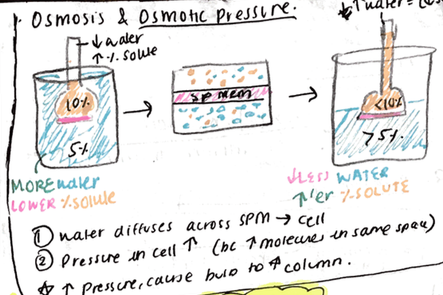 Osmosis & Osmotic Pressure.
↓ water
↑ % solute
↑ water =
10%
sp mem
<10%
5%
>5%
MORE water
LOWER % solute
↓LESS WATER
↑'er % SOLUTE
① water diffuses across SPM → cell
② Pressure in cell ↑ (bc ↑ molecules in same space)
☆ ↑ pressure, cause bulb to ↑ column.